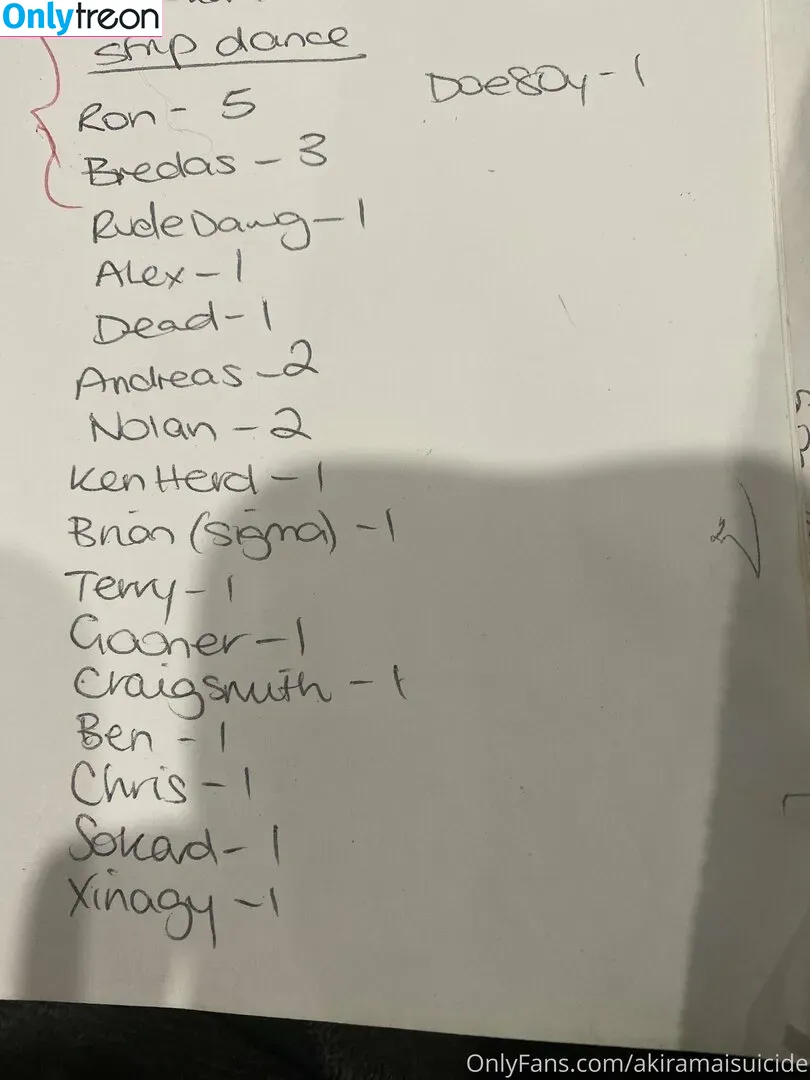 Onlytreon
strip dance
Ron - 5
Doe80y - 1
Bredas - 3
RudeDawg - 1
Alex - 1
Dead - 1
Andreas - 2
Nolan - 2
Ken Herd - 1
Brian (sigma) - 1
Terry - 1
Gaoner - 1
Craigsmith - 1
Ben - 1
Chris - 1
Sokad - 1
Xinagy - 1
OnlyFans.com/akiramaisuicide